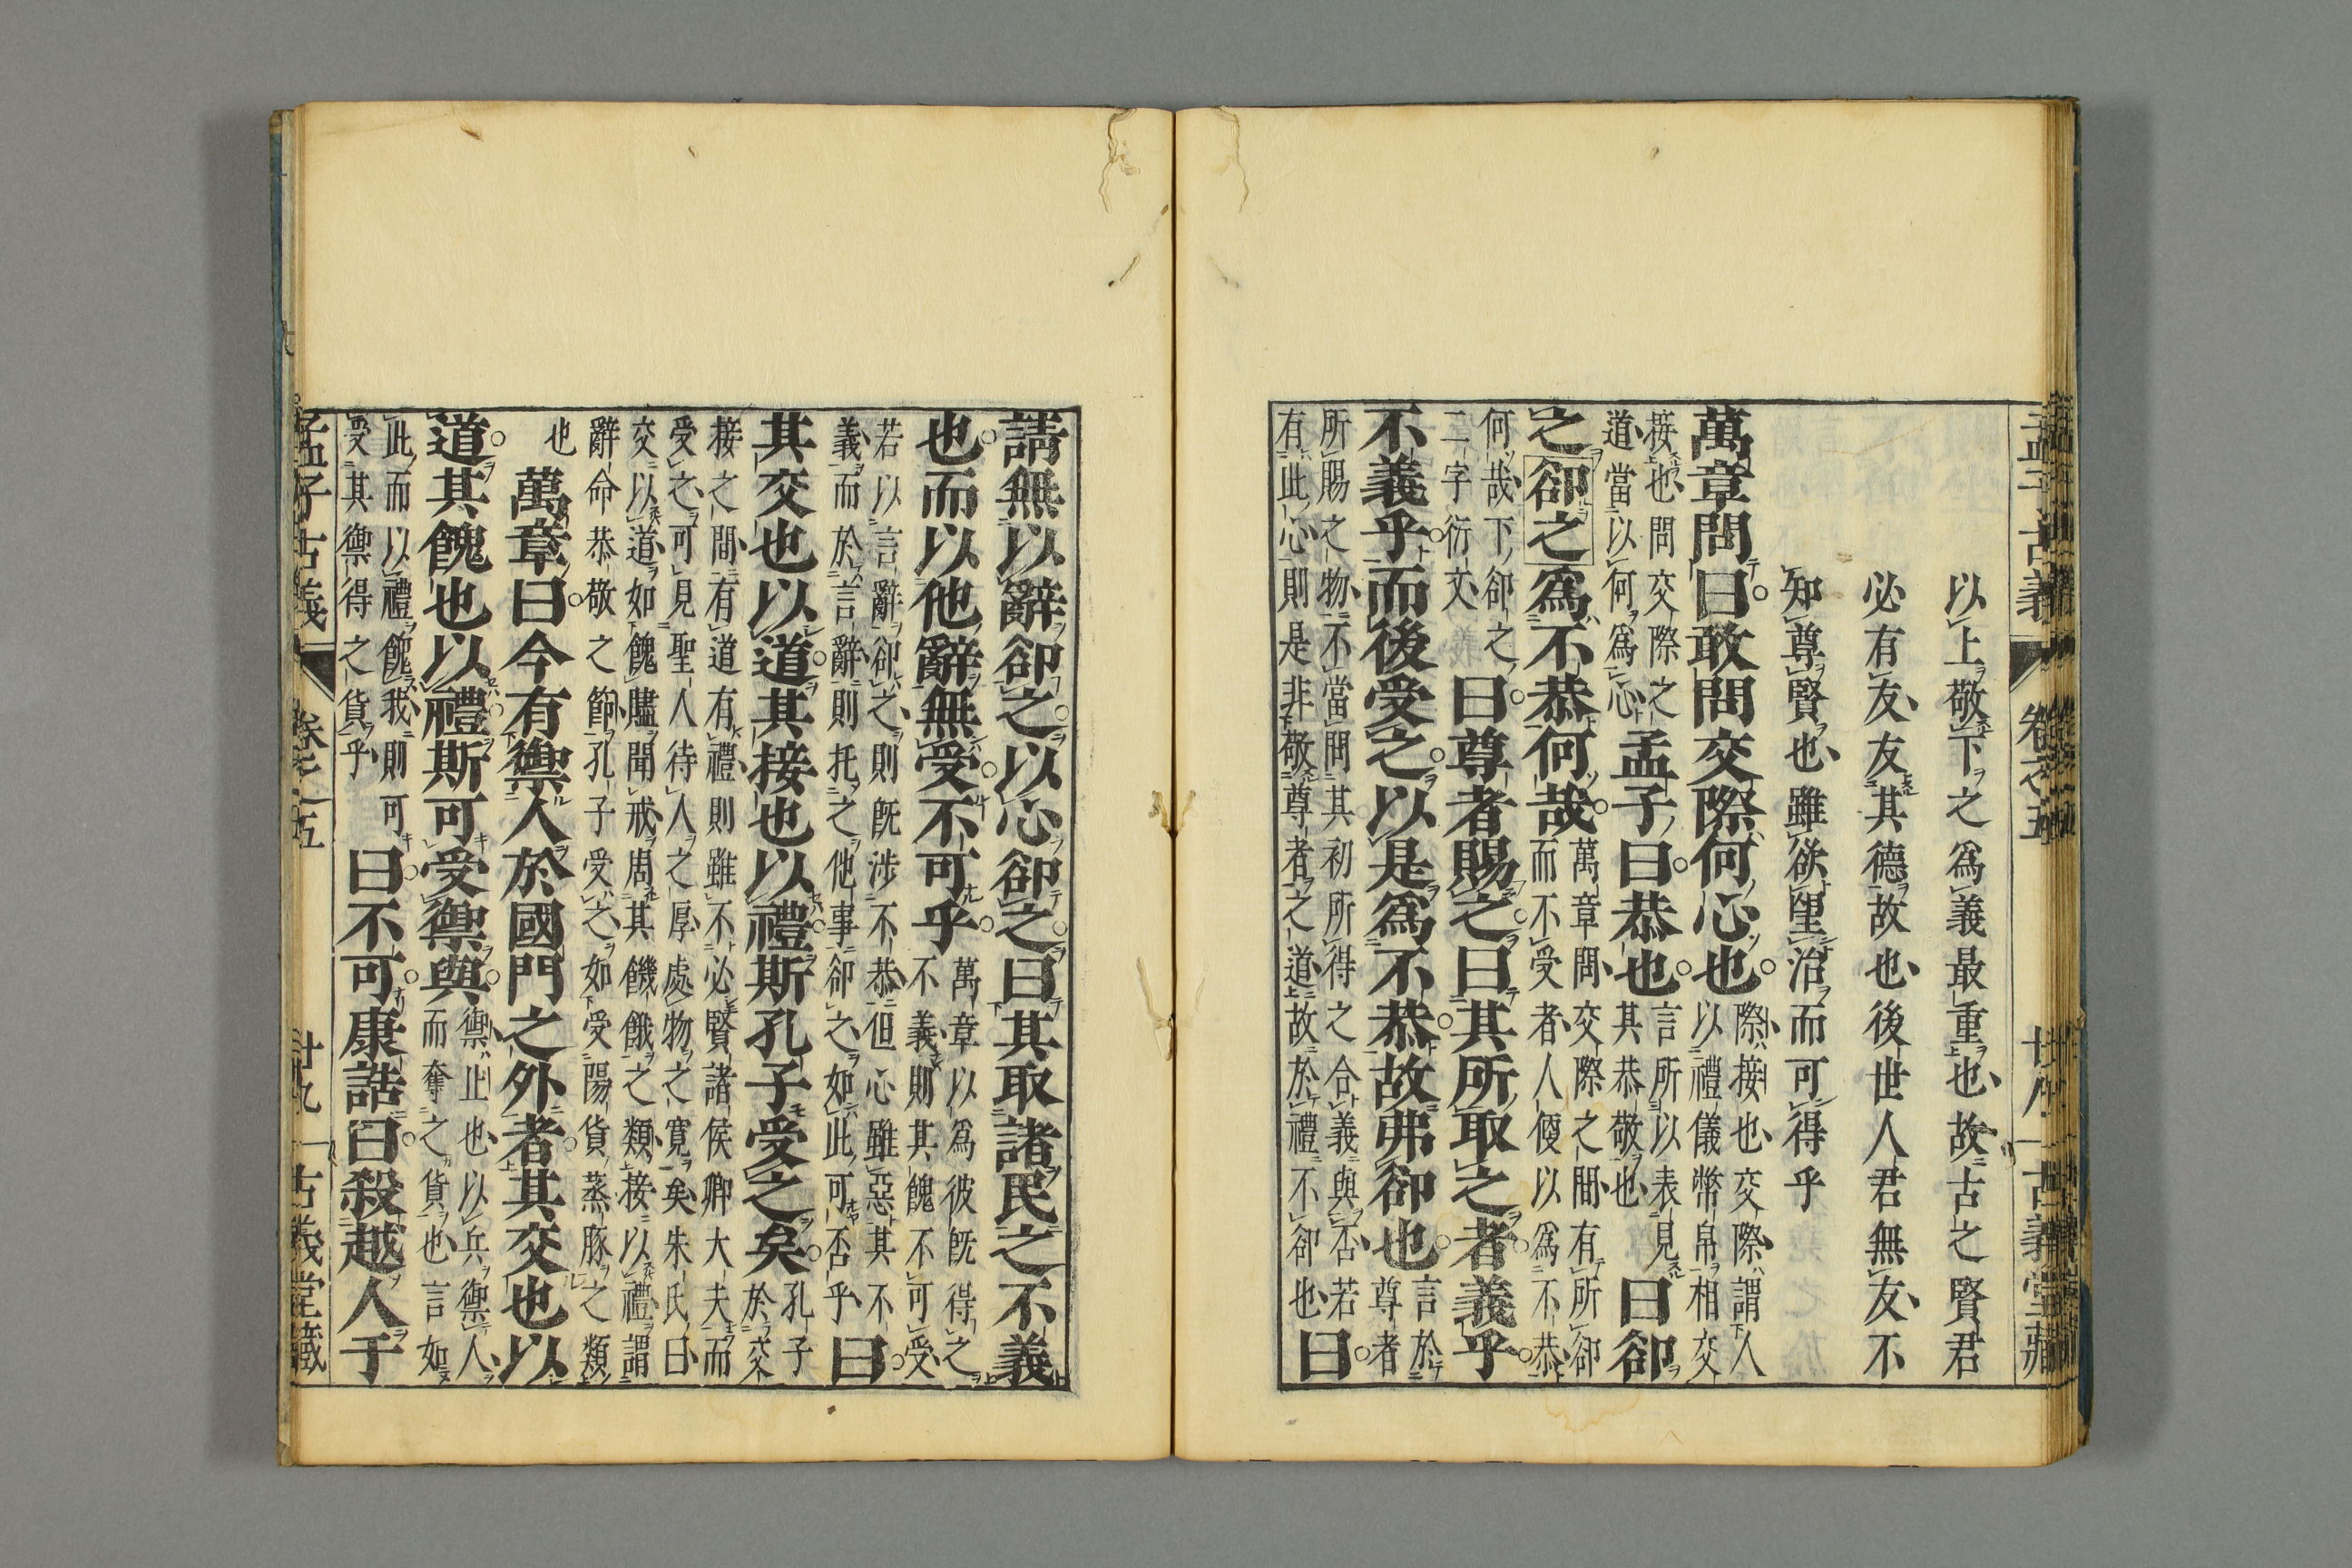 以上敬下之爲義最重也故古之賢君
必有友友其德故也後世人君無友不
知尊賢也雖欲望治而可得乎
萬章問曰敢問交際何心也際接也交際謂人
以禮儀幣帛相交
接也問交際之
道當以何爲心孟子曰恭也言所以表見
其恭敬也曰卻
之卻之爲不恭何哉萬章問交際之間有所卻
而不受者人便以爲不恭
何哉下卻之
二字衍文曰尊者賜之曰其所取之者義乎
不義乎而後受之以是爲不恭故弗卻也言於
尊者
所賜之物不當問其初所得之合義與否若
有此心則是非敬尊者之道故於禮不卻也曰
孟子古義 卷之五 廿八 古義堂藏
請無以辭卻之以心卻之曰其取諸民之不義
也而以他辭無受不可乎萬章以爲彼旣得之
不義則其餽不可受
若以言辭卻之則旣涉不恭但心雖惡其不
義而於言辭則托之他事卻之如此可否乎曰
其交也以道其接也以禮斯孔子受之矣孔子
於交
接之間有道有禮則雖不必賢諸侯卿大夫而
受之可見聖人待人之厚處物之寛矣朱氏曰
交以道如餽贐聞戒周其饑餓之類接以禮謂
辭命恭敬之節孔子受之如受陽貨蒸豚之類
也萬章曰今有禦人於國門之外者其交也以
道其餽也以禮斯可受禦與禦止也以兵禦人
而奪之貨也言如
此而以禮餽我則可
受其禦得之貨乎曰不可康誥曰殺越人于
孟子古義 卷之五 廿九 古義堂藏